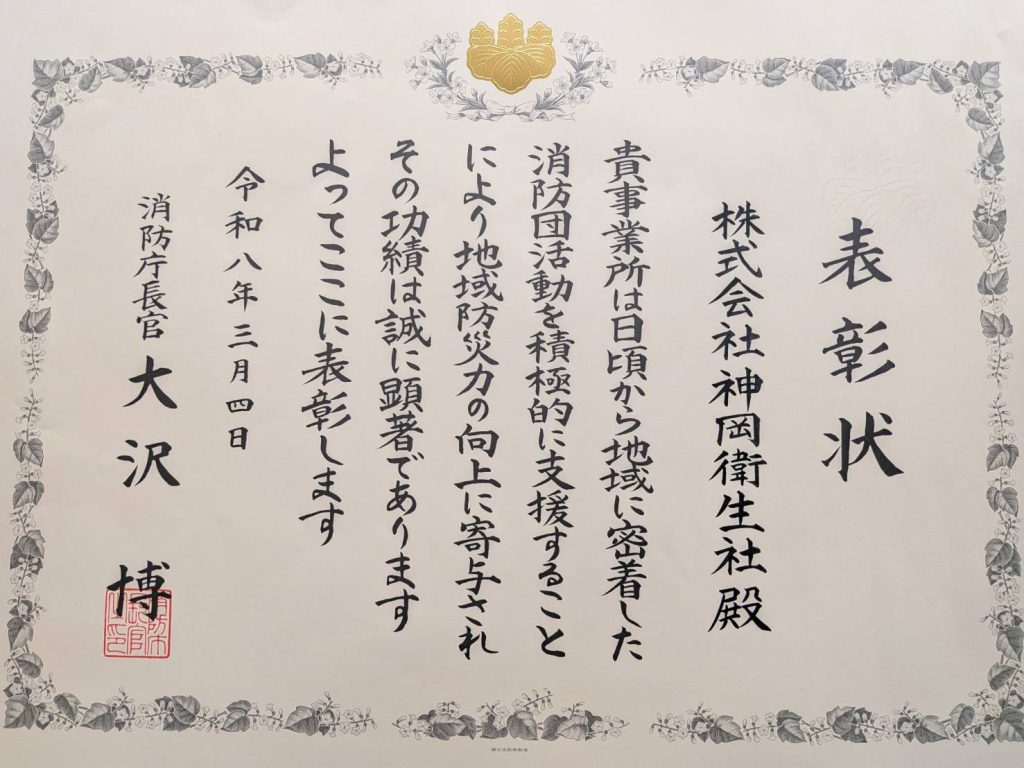 表彰状
株式会社神岡衛生社殿
貴事業所は日頃から地域に密着した
消防団活動を積極的に支援すること
により地域防災力の向上に寄与され
その功績は誠に顕著であります
よってここに表彰します
令和八年三月四日
消防庁長官 大沢 博